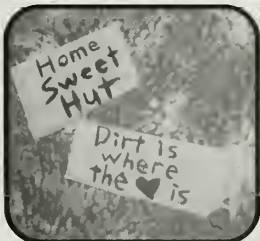 Home
Sweet
Hut
Dirt is
where
the ♥ is